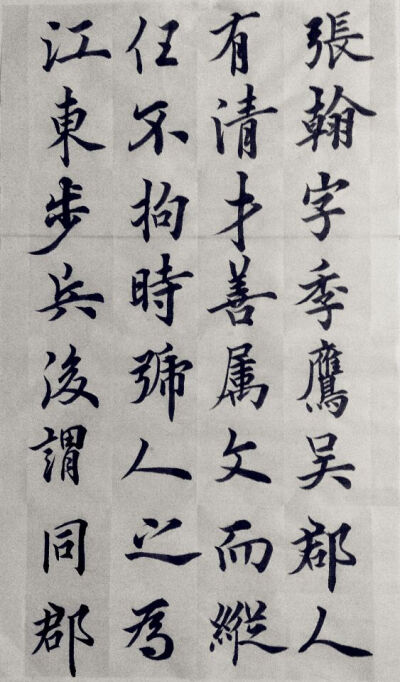 張翰字季鷹吴郡人
有清才善属文而縱
任不拘時號人之為
江東步兵後謂同郡